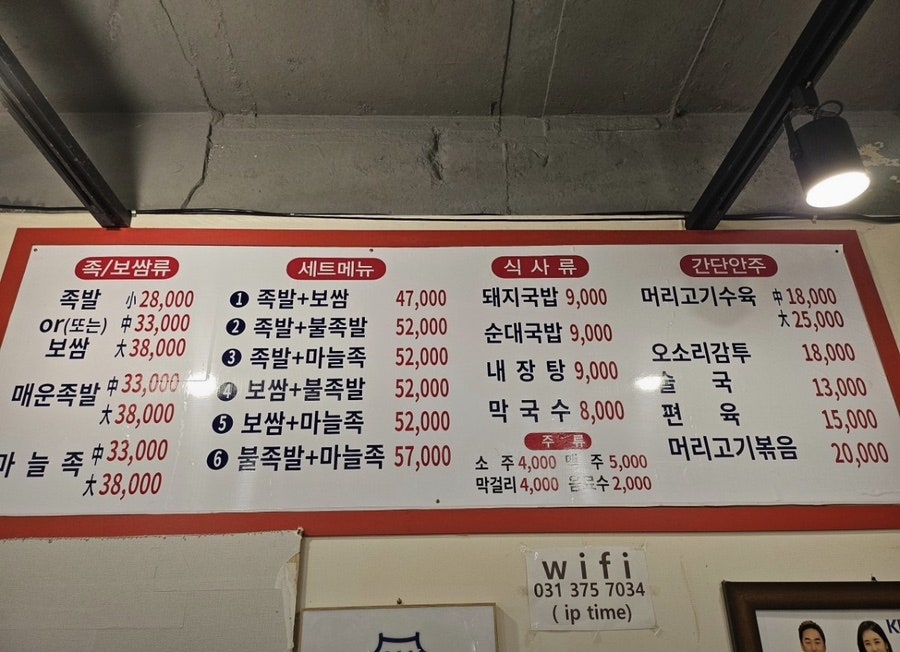 족/보쌈류
족발 小 28,000
or(또는) 中 33,000
보쌈 大 38,000
매운족발 中 33,000
大 38,000
마늘족 中 33,000
大 38,000
세트메뉴
❶ 족발+보쌈 47,000
❷ 족발+불족발 52,000
❸ 족발+마늘족 52,000
❹ 보쌈+불족발 52,000
❺ 보쌈+마늘족 52,000
❻ 불족발+마늘족 57,000
식사류
돼지국밥 9,000
순대국밥 9,000
내장탕 9,000
막국수 8,000
주류
소주 4,000 맥주 5,000
막걸리 4,000 음료수 2,000
간단안주
머리고기수육 中 18,000
大 25,000
오소리감투 18,000
술국 13,000
편육 15,000
머리고기볶음 20,000
wifi
031 375 7034
( ip time)